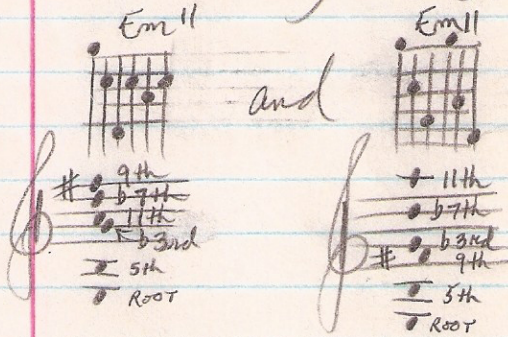 Em11
and
Em11
# 9th
b7th
11th
b3rd
5th
ROOT
11th
b7th
b3rd
# 9th
5th
ROOT